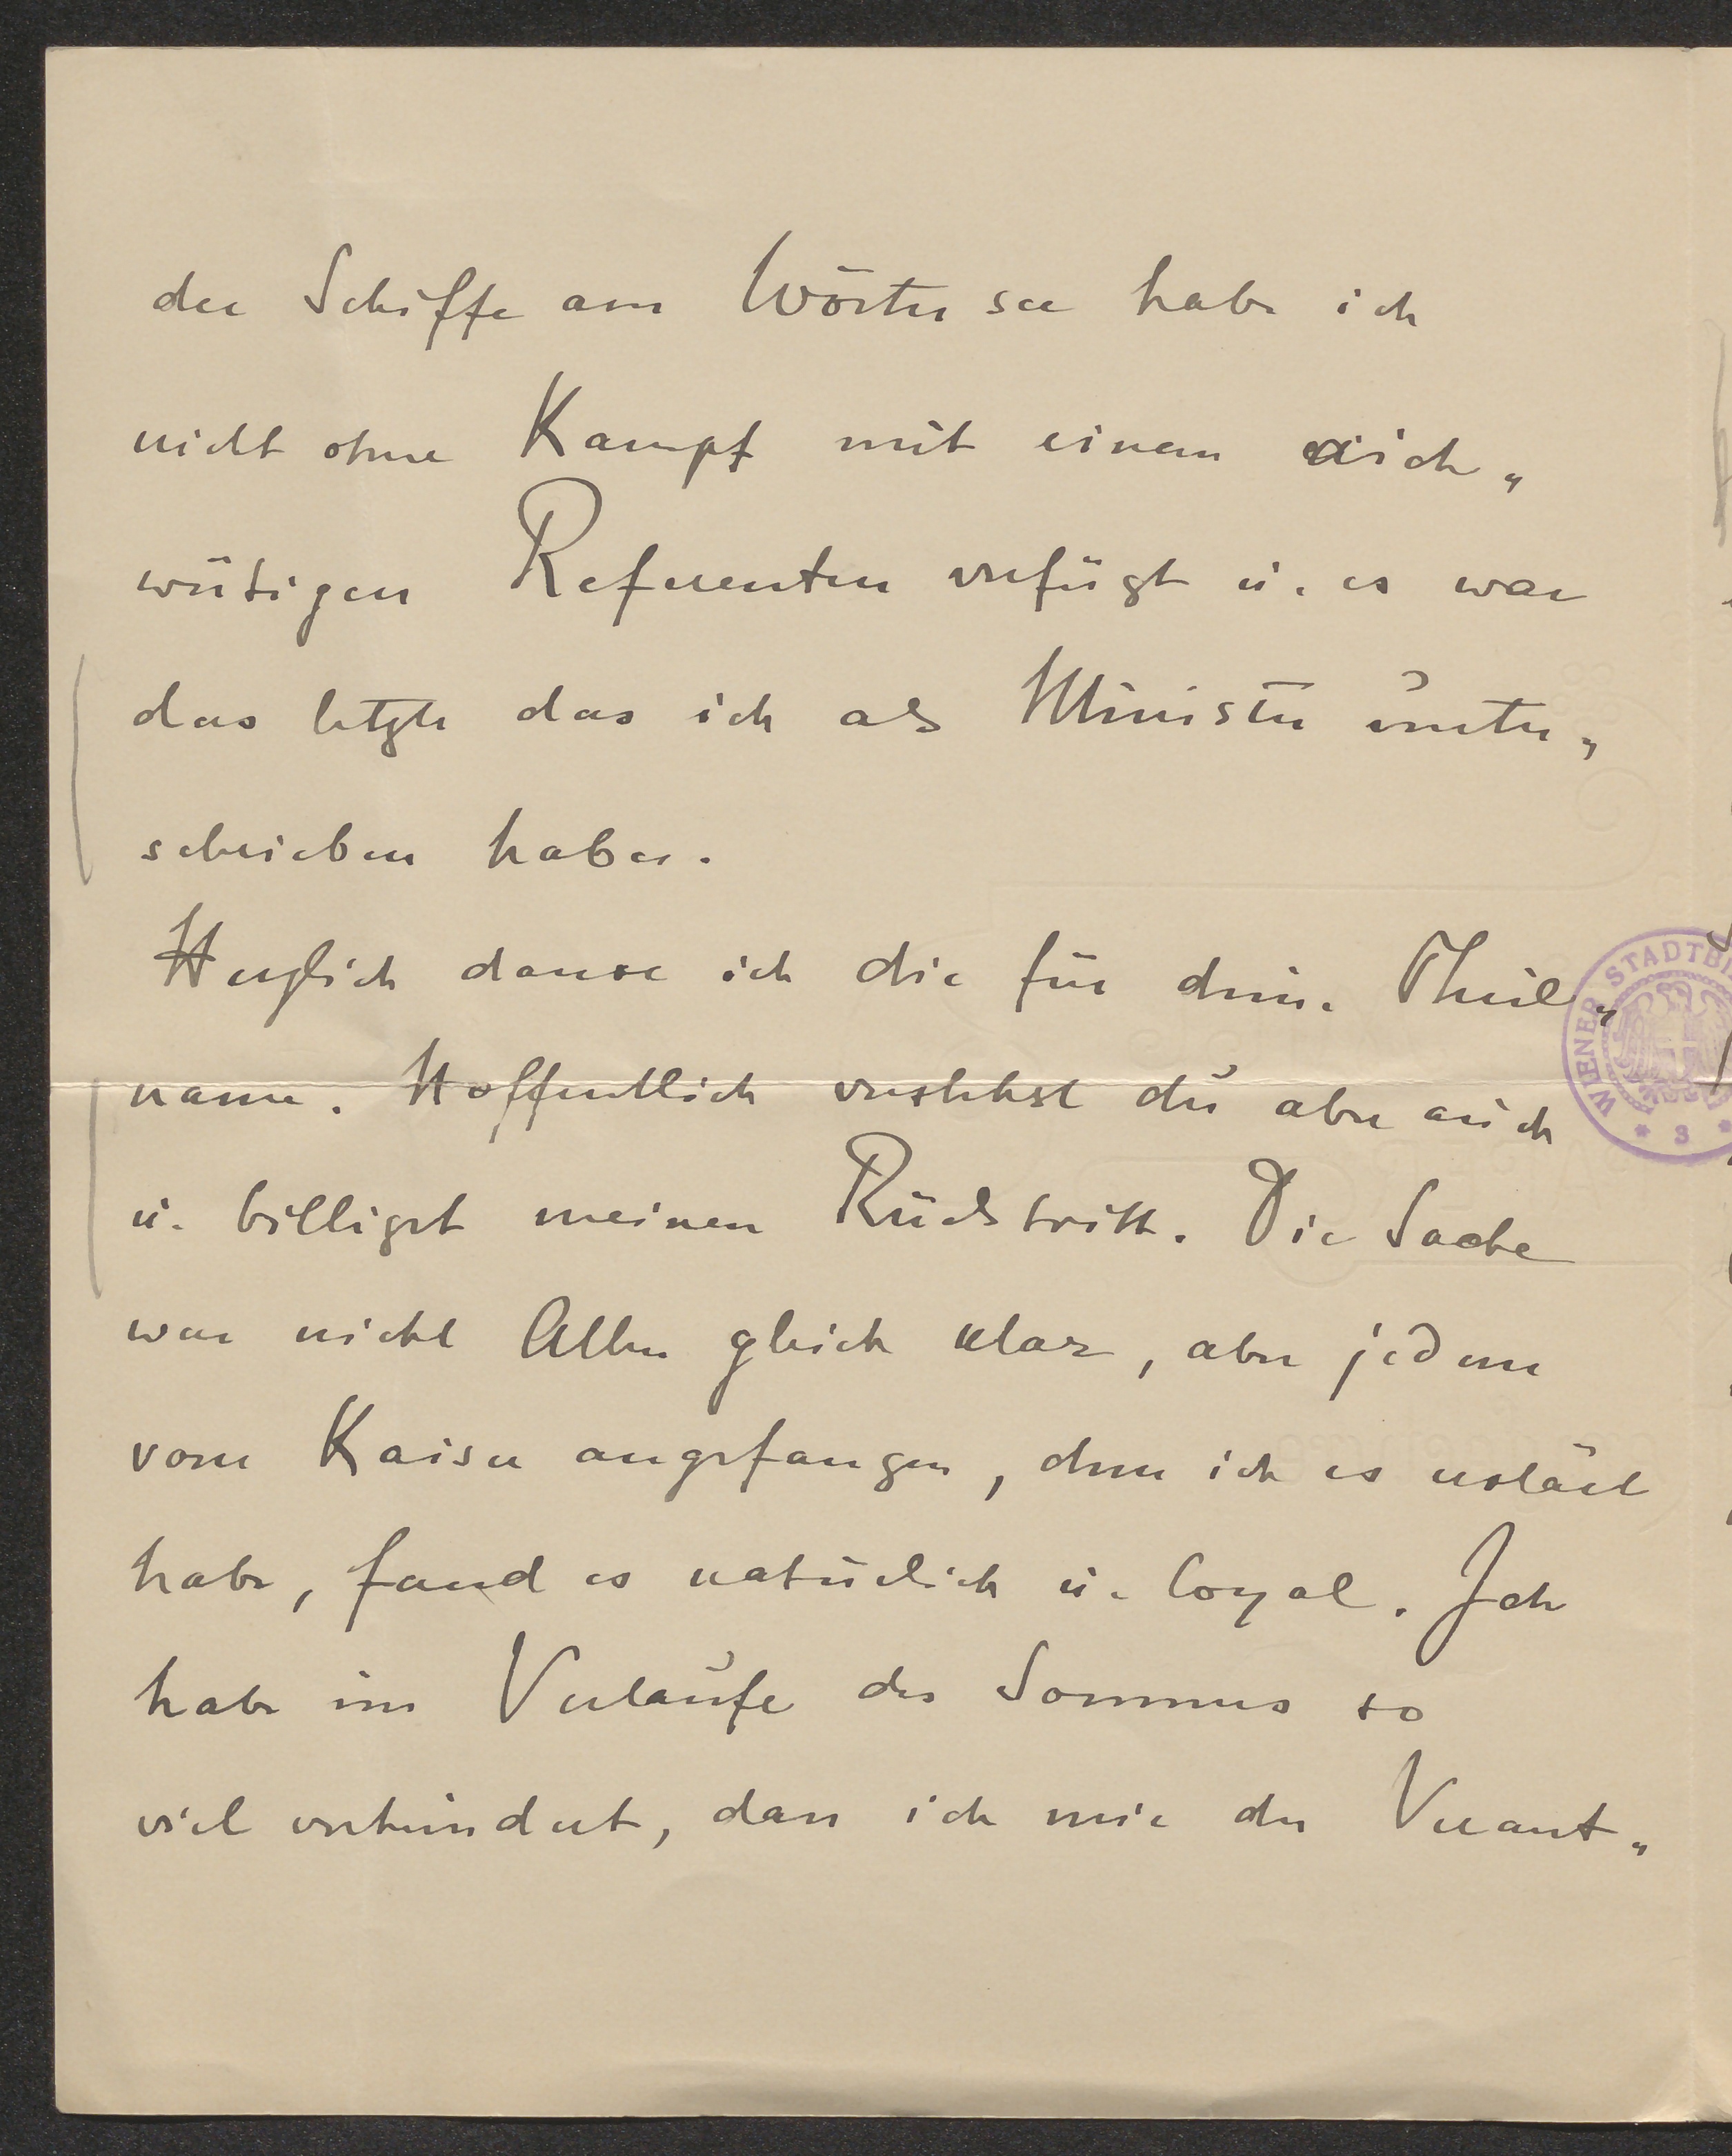 der Schiffe am Wörter see habe ich
nicht ohne Kampf mit einem
wütigen Referenten verfügt u. es war
das letzte das ich als Minister unter„
schrieben habe.
Herzlich danke ich dir für deine Theil„
name. Hoffentlich verstehst du aber auch
u. billigst meinen Rücktritt. Die Sache
war nicht Allen gleich klar, aber jedem
vom Kaiser angefangen, dem ich es erklärt
habe, fand es natürlich u. loyal. Ich
habe im Verlaufe des Sommers so
viel verhindert, dass ich mir der Verant„
WIENER STADTBI
* 3 *